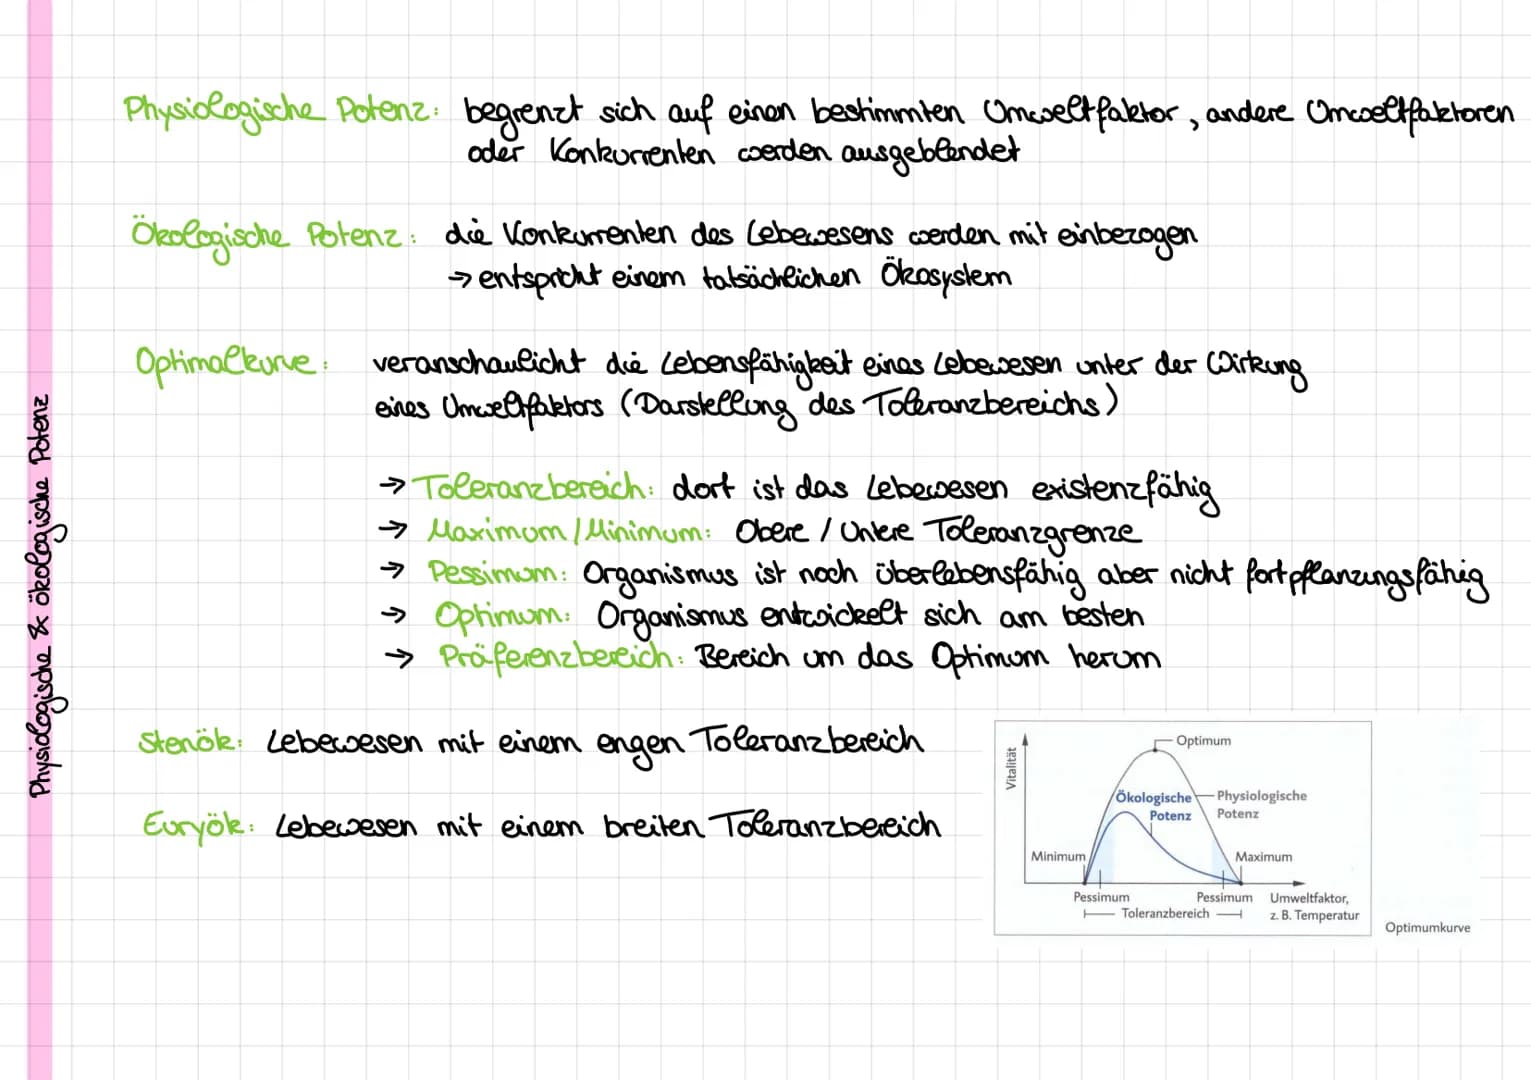 Physiologische & ökologische Potenz
Physiologische Potenz: begrenzt sich auf einen bestimmten Umweltfaktor, andere Umweltfaktoren
oder Konkurrenten werden ausgeblendet
Ökologische Potenz: die Konkurrenten des Lebewesens werden mit einbezogen
→ entspricht einem tatsächlichen Ökosystem
Optimalkurve: veranschaulicht die Lebensfähigkeit eines Lebewesen unter der Wirkung
eines Umweltfaktors (Darstellung des Toleranzbereichs)
→ Toleranzbereich: dort ist das Lebewesen existenzfähig
→ Maximum/Minimum: Obere / Untere Toleranzgrenze
→ Pessimum: Organismus ist noch überlebensfähig aber nicht fortpflanzungsfähig
→ Optimum: Organismus entwickelt sich am besten
→ Präferenzbereich: Bereich um das Optimum herum
Stenök: Lebewesen mit einem engen Toleranzbereich
Euryök: Lebewesen mit einem breiten Toleranzbereich
Vitalität
Optimum
Ökologische
Potenz
Physiologische
Potenz
Minimum
Maximum
Pessimum
Pessimum
Toleranzbereich
Umweltfaktor,
z. B. Temperatur
Optimumkurve